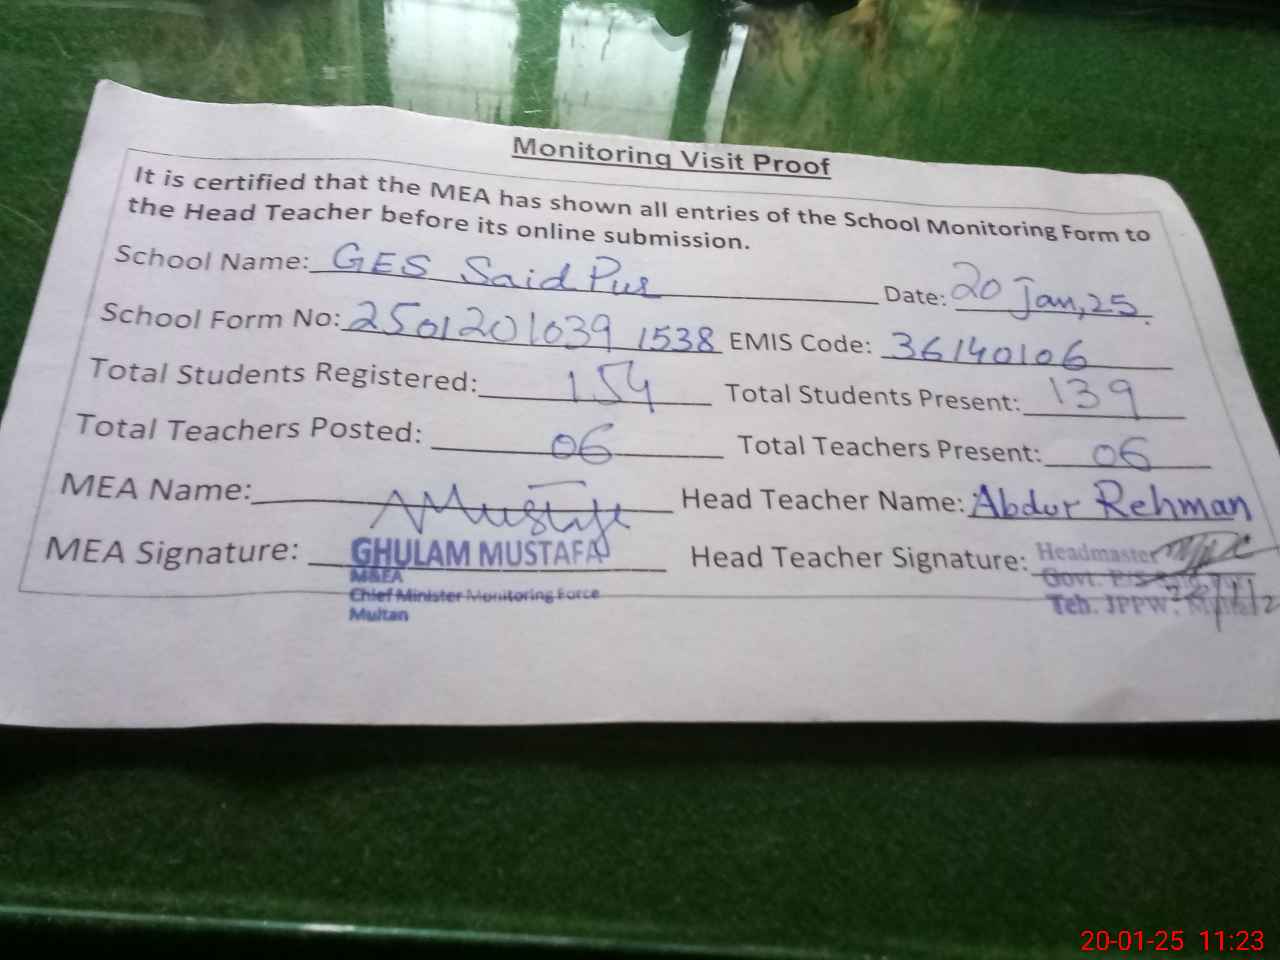 Monitoring Visit Proof
It is certified that the MEA has shown all entries of the School Monitoring Form to
the Head Teacher before its online submission.
School Name: GES Said Pur Date: 20 Jan, 25.
School Form No: 2501201039 1538 EMIS Code: 36140106
Total Students Registered: 154 Total Students Present: 139
Total Teachers Posted: 06 Total Teachers Present: 06
MEA Name: Head Teacher Name: Abdur Rehman
MEA Signature: GHULAM MUSTAFA Head Teacher Signature: Headmaster
M&EA Govt.
Chief Minister Monitoring Force Teh. JPPW
Multan
20-01-25 11:23